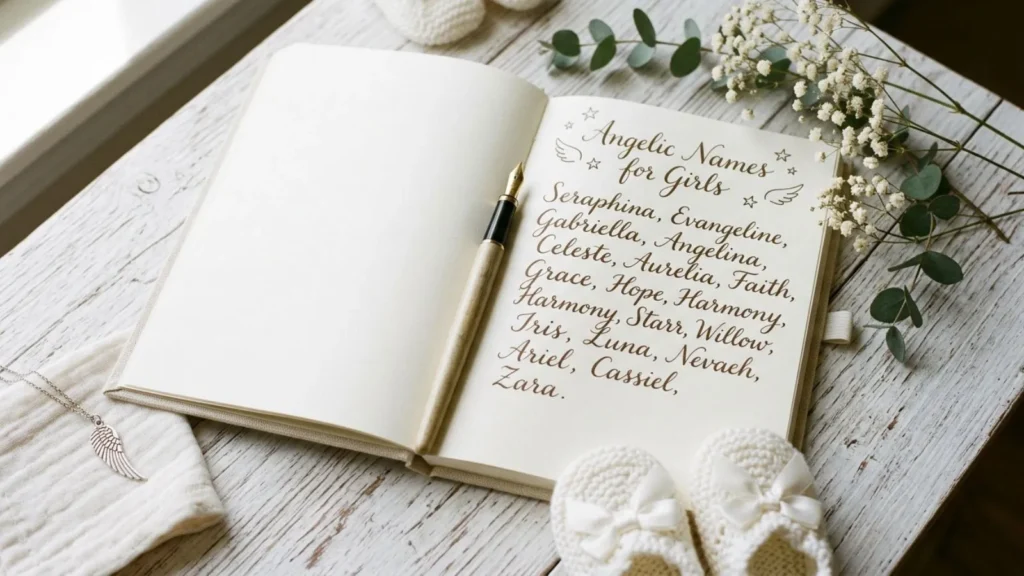 Angelic Names
for Girls
Seraphina, Evangeline,
Gabriella, Angelina,
Celeste, Aurelia, Faith,
Grace, Hope, Harmony,
Harmony, Starr, Willow,
Iris, Luna, Nevaeh,
Ariel, Cassiel,
Zara.